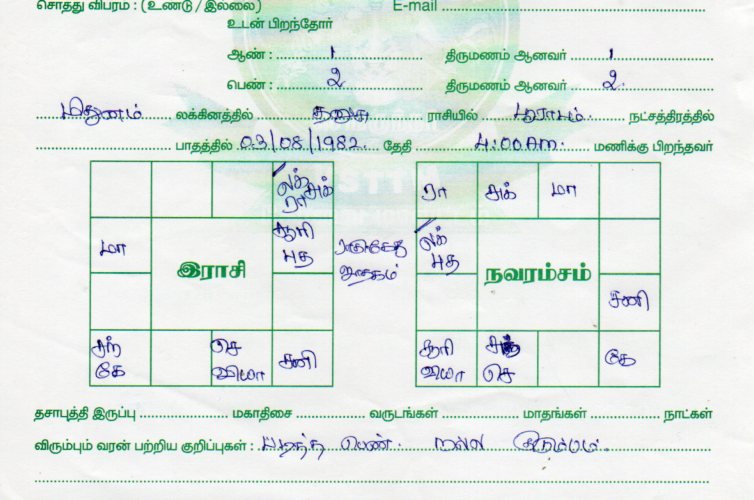 சொத்து விபரம் : (உண்டு / இல்லை) E-mail
உடன் பிறந்தோர்
ஆண் : 1 திருமணம் ஆனவர் 1
பெண் : 2 திருமணம் ஆனவர் 2
மிதுனம் லக்கினத்தில் தனுசு ராசியில் பூராடம் நட்சத்திரத்தில்
பாதத்தில் 03/08/1982 தேதி 4:00 AM மணிக்கு பிறந்தவர்
லக் சுக் ரா ரா சுக் மா
மா சூரி புத ராகுகேது ஜாதகம் லக் புத
இராசி நவரம்சம்
சனி
சந் கே செ வியா சனி சூரி வியா செ கே
தசாபுத்தி இருப்பு மகாதிசை வருடங்கள் மாதங்கள் நாட்கள்
விரும்பும் வரன் பற்றிய குறிப்புகள் : படித்த பெண். நல்ல குடும்பம்.